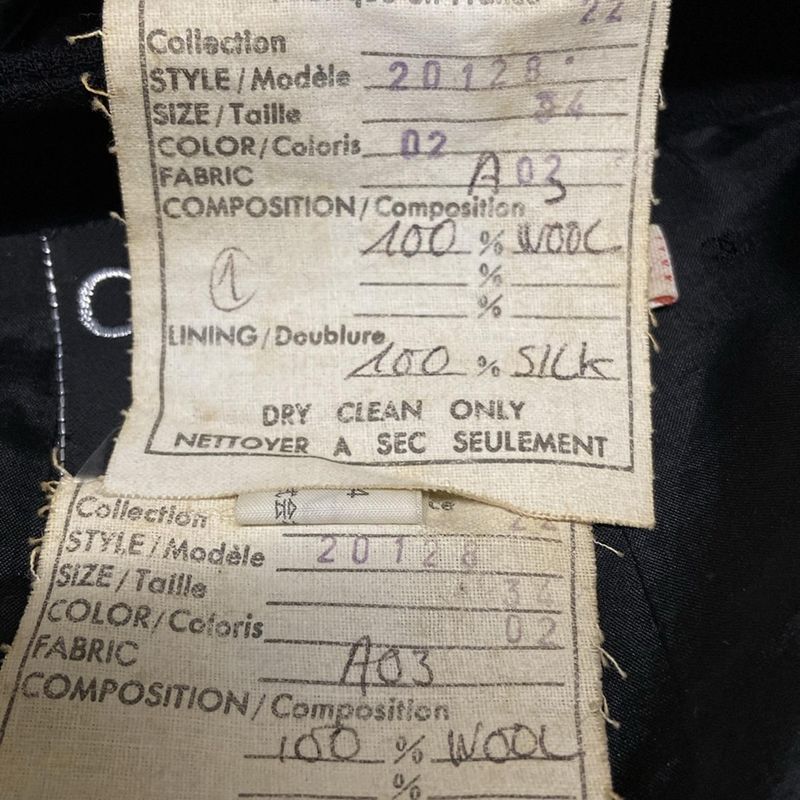 en France
22
Collection
STYLE/Modèle 20128
SIZE/Taille 34
COLOR/Coloris 02
FABRIC A03
COMPOSITION/Composition
100 % WOOL
%
1
%
LINING/Doublure
100 % SILK
DRY CLEAN ONLY
NETTOYER A SEC SEULEMENT
Collection 22
STYLE/Modèle 20128
SIZE/Taille 34
COLOR/Coloris 02
FABRIC A03
COMPOSITION/Composition
100 % WOOL
%